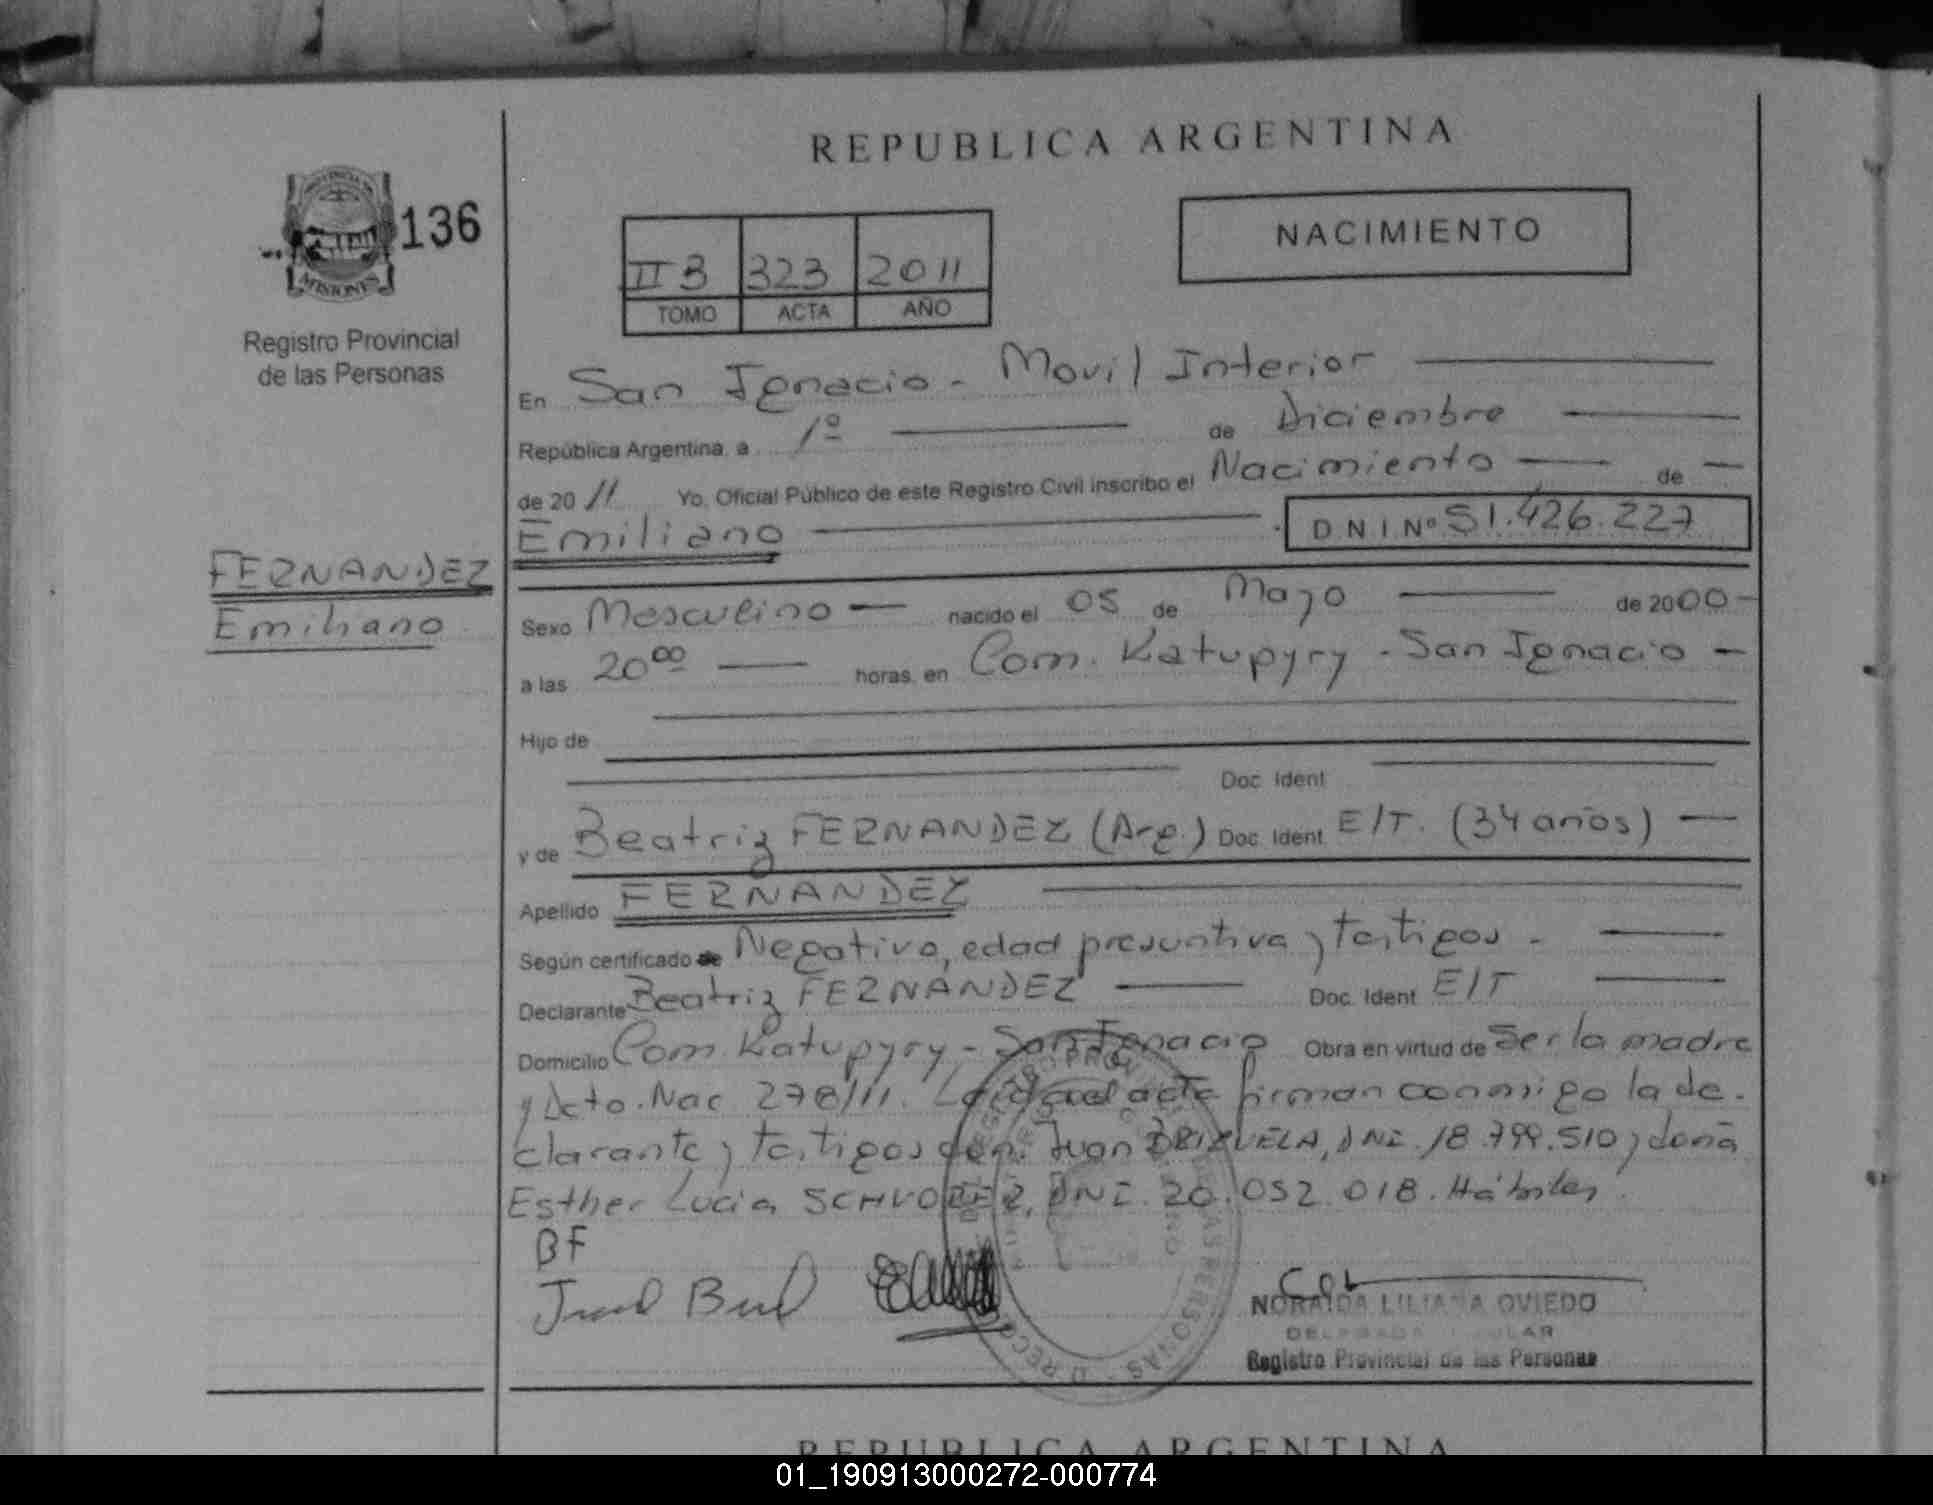 REPUBLICA ARGENTINA
PROVINCIA DE
MISIONES
136
Registro Provincial
de las Personas
II B 323 2011
TOMO ACTA AÑO
NACIMIENTO
En San Ignacio - Movil Interior
República Argentina, a 1º de Diciembre
de 2011 Yo, Oficial Público de este Registro Civil inscribo el Nacimiento de
Emiliano D N I Nº 51.426.227
FERNANDEZ
Emiliano
Sexo Masculino nacido el 05 de Mayo de 2000
a las 20 00 horas, en Com. Katupyry - San Ignacio
Hijo de
Doc. Ident
y de Beatriz FERNANDEZ (Arg.) Doc. Ident E/T. (34 años)
Apellido FERNANDEZ
Según certificado de Negativo, edad presuntiva y testigos -
Declarante Beatriz FERNANDEZ Doc. Ident E/T
Domicilio Com. Katupyry - San Ignacio Obra en virtud de Ser la madre
y Dcto. Nac 278/11. Leída el acta firman conmigo la de-
clarante y testigos don: Juan BRIZUELA, DNI. 18.799.510 y doña
Esther Lucia, DNI. 20.052.018. Hábiles.
BF
NORAIDA LILIANA OVIEDO
DELEGADA TITULAR
Registro Provincial de las Personas
REPUBLICA ARGENTINA
01_190913000272-000774